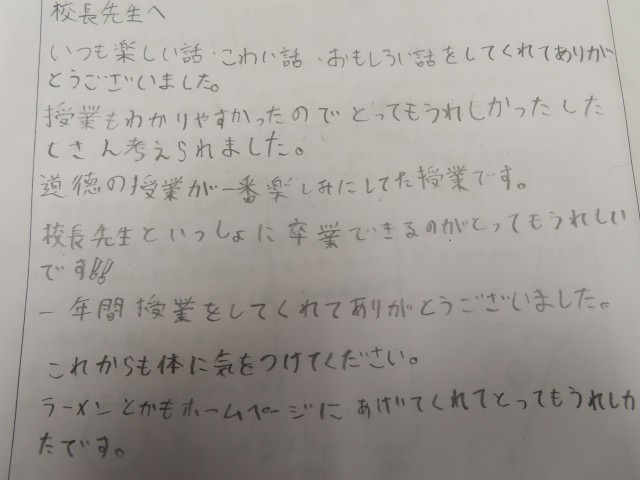 校長先生へ
いつも楽しい話・こわい話・おもしろい話をしてくれてありが
とうございました。
授業もわかりやすかったのでとってもうれしかったした
くさん考えられました。
道徳の授業が一番楽しみにしてた授業です。
校長先生といっしょに卒業できるのがとってもうれしい
です!!
一年間授業をしてくれてありがとうございました。
これからも体に気をつけてください。
ラーメンとかもホームページにあげてくれてとってもうれしか
たです。